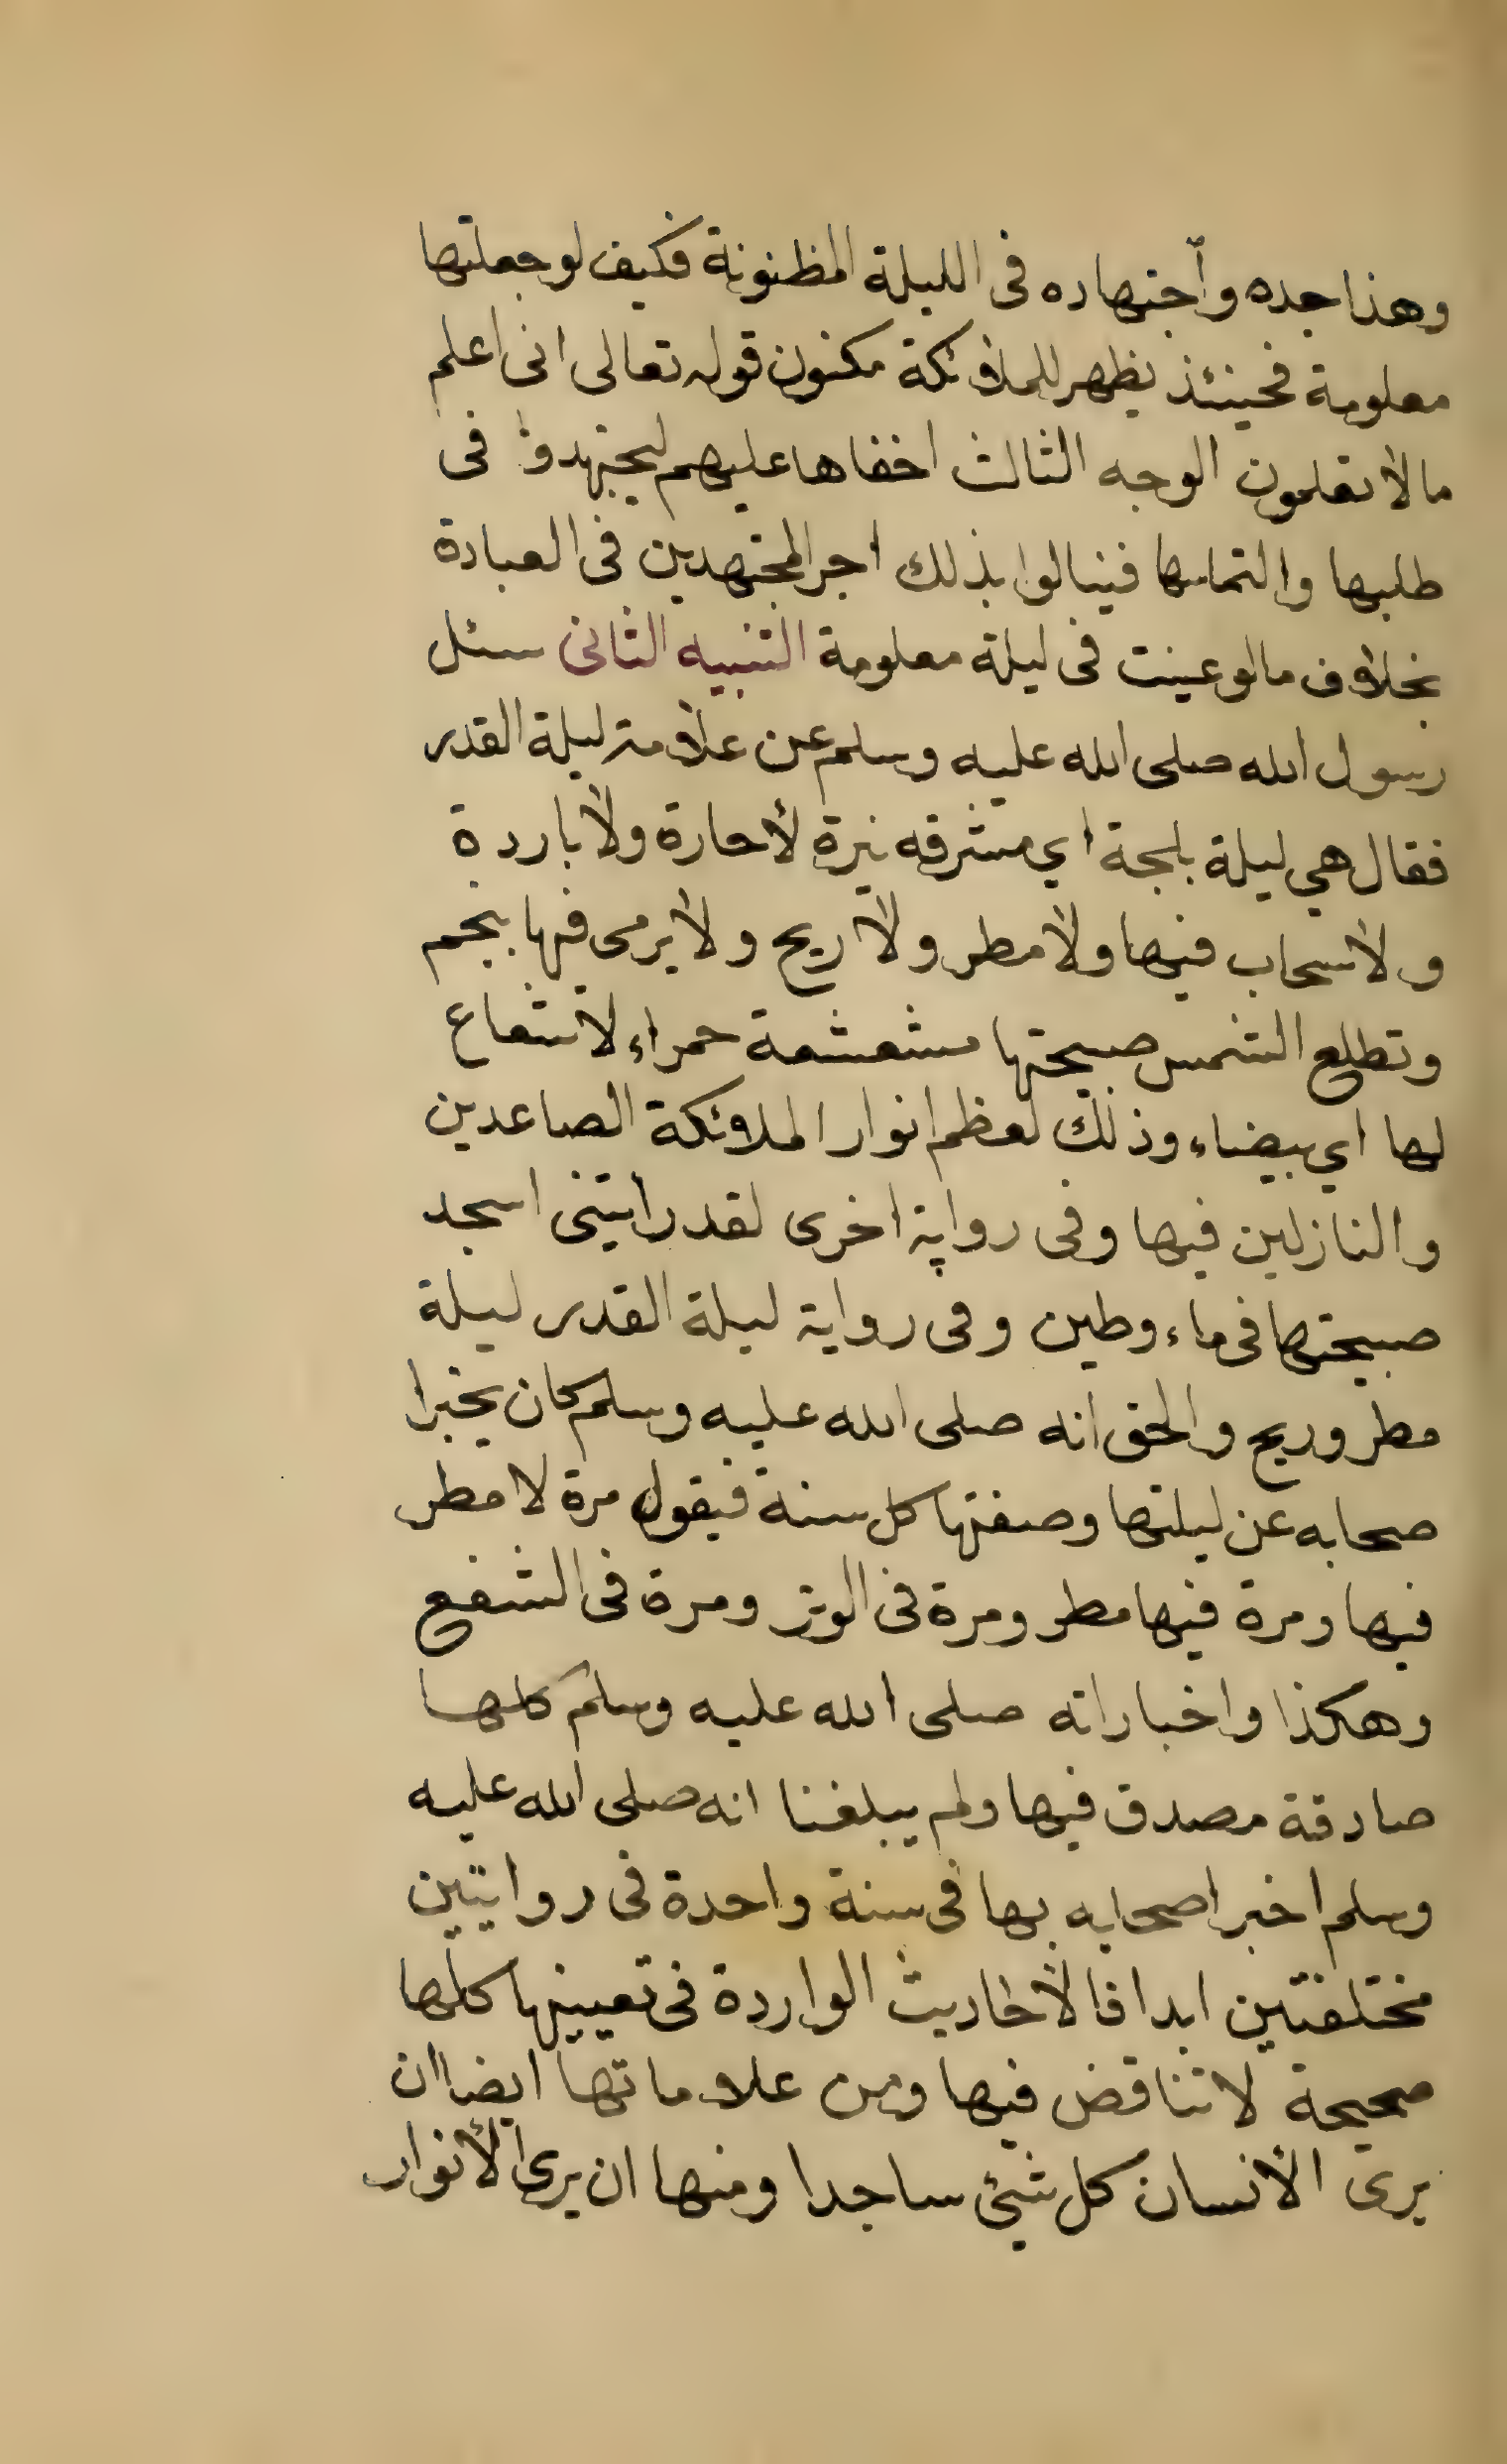 وهذا جده وأجتهاده فى الليلة المظنونة فكيف لو جعلتها
معلومة فحينئذ يظهر للملائكة مكنون قوله تعالى انى اعلم
مالا تعلمون الوجه الثالث اخفاها عليهم ليجتهدوا فى
طلبها والتماسها فينالوا بذلك اجر المجتهدين فى العبادة
بخلاف مالو عينت فى ليلة معلومة التنبيه الثانى سئل
رسول الله صلى الله عليه وسلم عن علامة ليلة القدر
فقال هي ليلة بلجة اي مشرقه نيرة لأحارة ولأباردة
ولأسحاب فيها ولأمطر ولأريح ولأيرمى فيها بنجم
وتطلع الشمس صبيحتها مشعشعة حمراء لا شعاع
لها اي بيضاء وذلك لعظم انوار الملائكة الصاعدين
والنازلين فيها وفى رواية اخرى لقد رأيتنى اسجد
صبيحتها فى ماء وطين وفى رواية ليلة القدر ليلة
مطر وريح والحق انه صلى الله عليه وسلم كان يخبر ا
صحابه عن ليلتها وصفتها كل سنة فيقول مرة لا مطر
فيها ومرة فيها مطر ومرة فى الوتر ومرة فى الشفع
وهكذا واخباراته صلى الله عليه وسلم كلها
صادقة مصدق فيها ولم يبلغنا انه صلى الله عليه
وسلم اخبر اصحابه بها فى سنة واحدة فى روايتين
مختلفتين ابدا فالأحاديث الواردة فى تعيينها كلها
صحيحة لا تناقض فيها ومن علاماتها ايضا ان
يرى الأنسان كل شيئ ساجدا ومنها ان يرى الأنوار